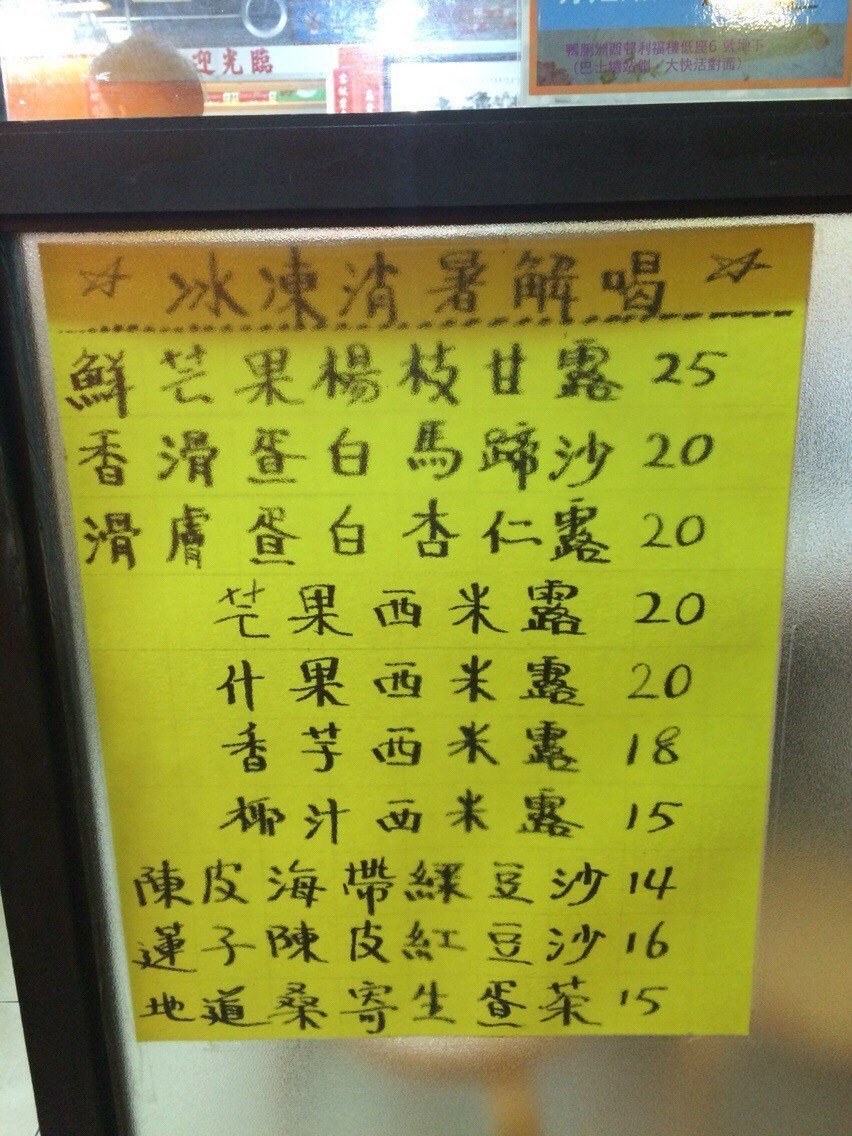 迎光臨
鴨脷洲西邨利福樓低座6號地下
(巴士總站側/大快活對面)
☆ 冰凍消暑解喝 ☆
鮮芒果楊枝甘露 25
香滑蛋白馬蹄沙 20
滑膚蛋白杏仁露 20
芒果西米露 20
什果西米露 20
香芋西米露 18
椰汁西米露 15
陳皮海帶綠豆沙 14
蓮子陳皮紅豆沙 16
地道桑寄生蛋茶 15